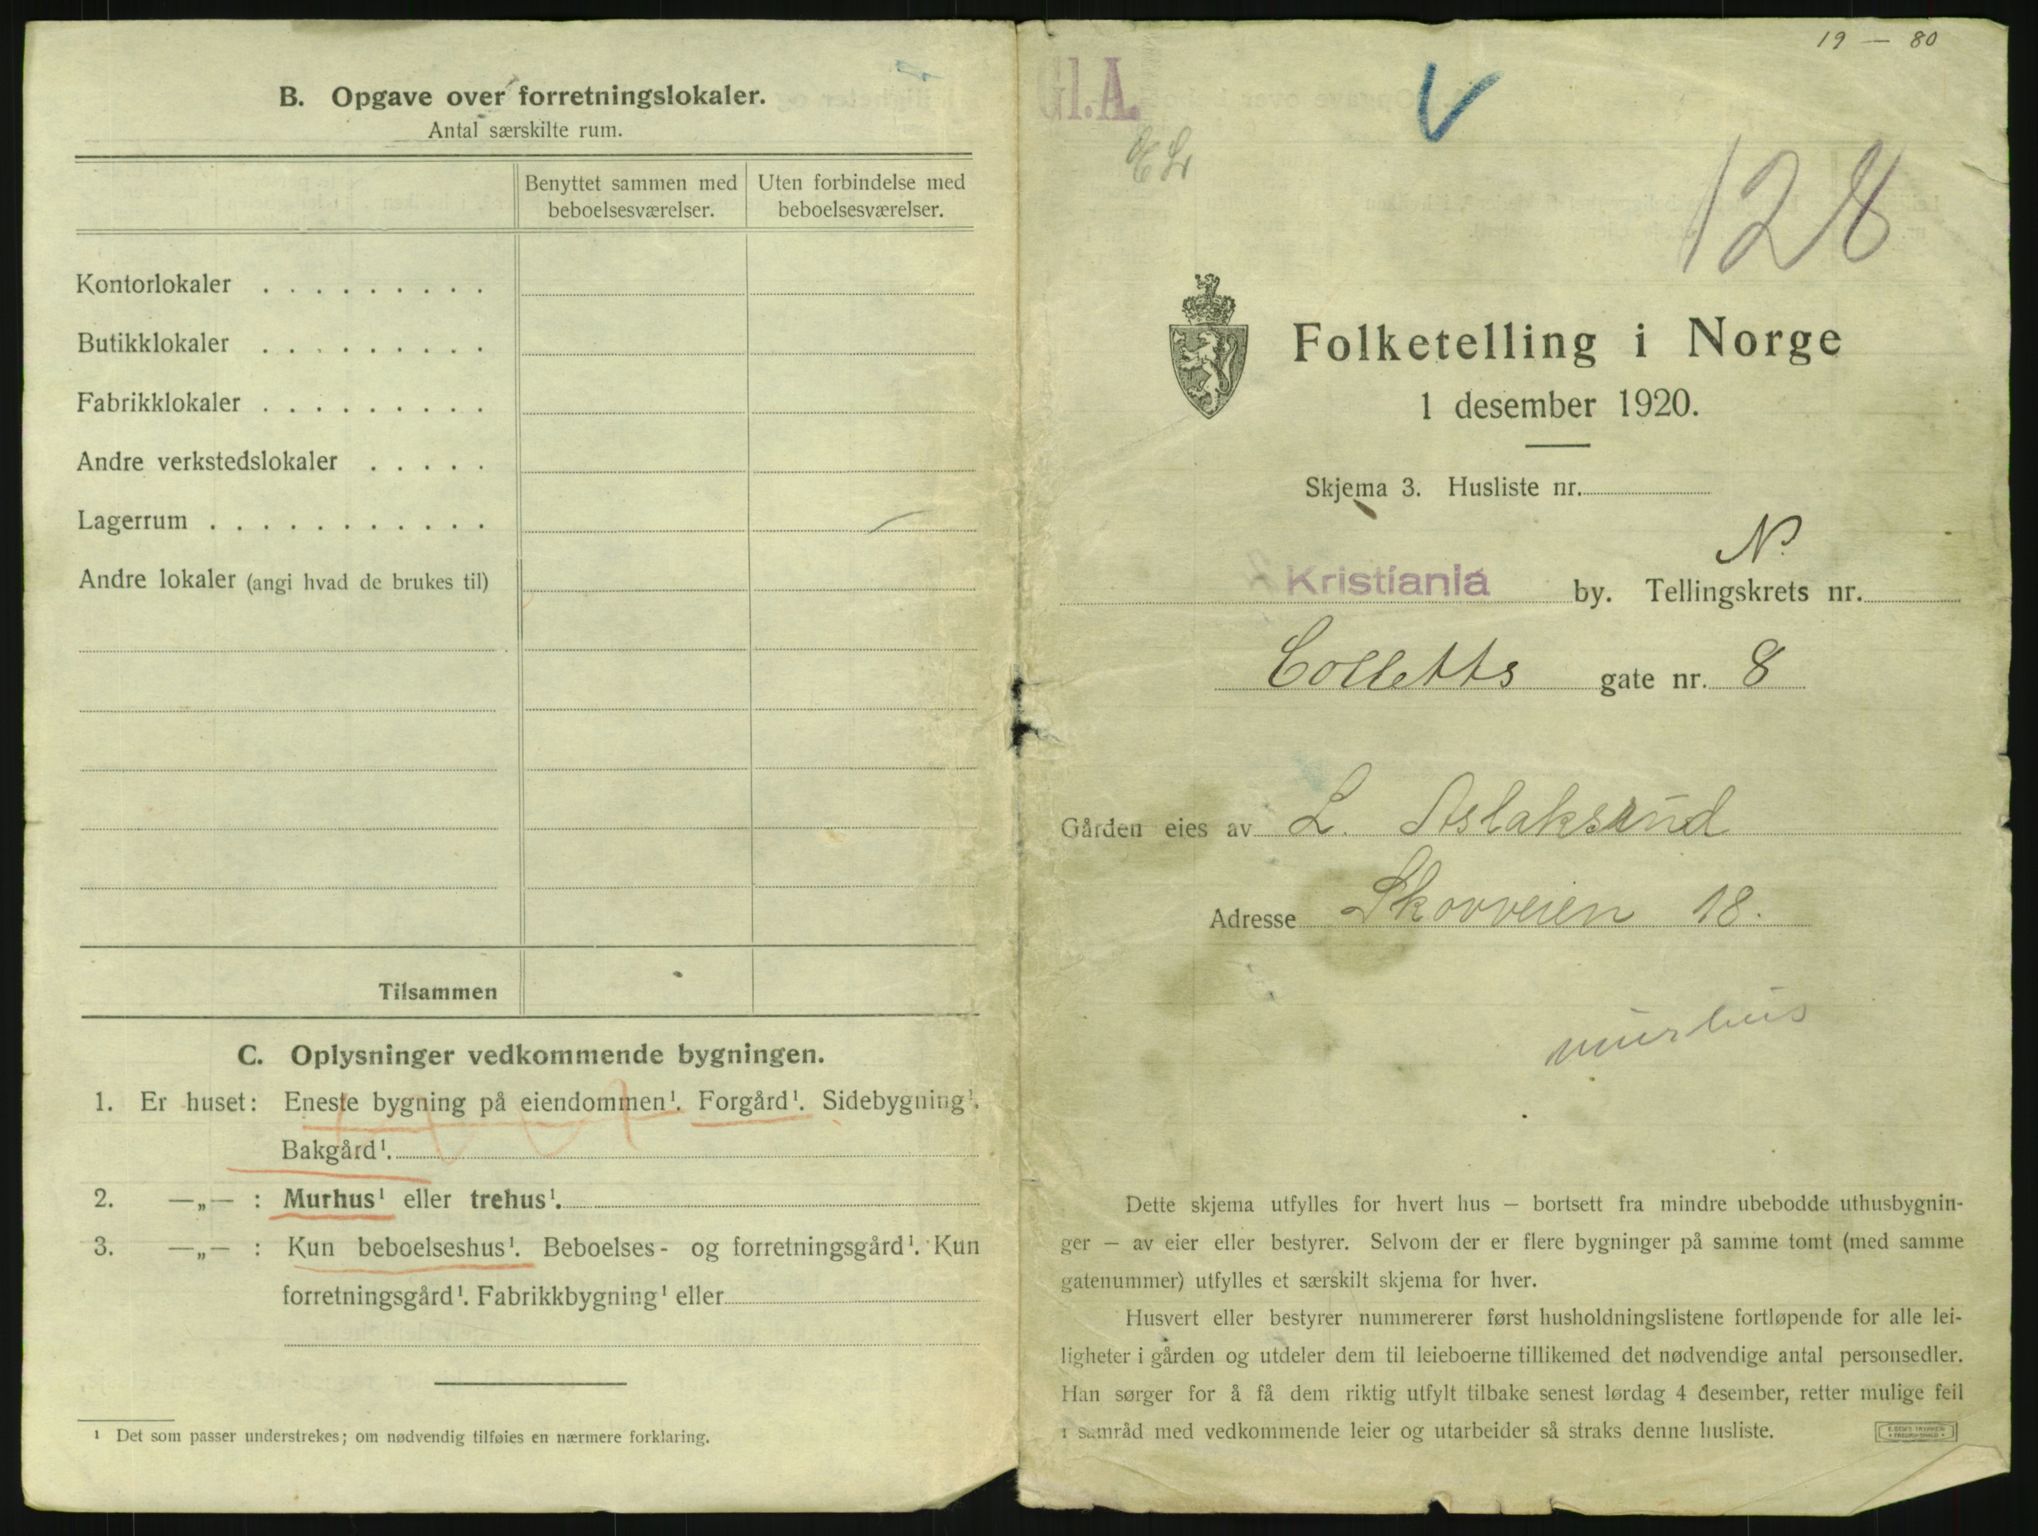 B. Opgave over forretningslokaler.
Antal særskilte rum.
Benyttet sammen med beboelsesværelser.
Uten forbindelse med beboelsesværelser.
Kontorlokaler . . . . . . . . .
Butikklokaler . . . . . . . . .
Fabrikklokaler . . . . . . . . .
Andre verkstedslokaler . . . . .
Lagerrum . . . . . . . . . . .
Andre lokaler (angi hvad de brukes til)
Tilsammen
C. Oplysninger vedkommende bygningen.
1. Er huset: Eneste bygning på eiendommen¹. Forgård¹. Sidebygning¹.
Bakgård¹.
2. —„— : Murhus¹ eller trehus¹.
3. —„— : Kun beboelseshus¹. Beboelses- og forretningsgård¹. Kun
forretningsgård¹. Fabrikkbygning¹ eller
¹ Det som passer understrekes; om nødvendig tilføies en nærmere forklaring.
19 — 80
Gl.A.
128
Folketelling i Norge
1 desember 1920.
Skjema 3. Husliste nr.
N.
Kristiania by. Tellingskrets nr.
Colletts gate nr. 8
Gården eies av L. Aslaksrud
Adresse Skovveien 18.
murhus
Dette skjema utfylles for hvert hus — bortsett fra mindre ubebodde uthusbygnin-
ger — av eier eller bestyrer. Selvom der er flere bygninger på samme tomt (med samme
gatenummer) utfylles et særskilt skjema for hver.
Husvert eller bestyrer nummererer først husholdningslistene fortløpende for alle lei-
ligheter i gården og utdeler dem til leieboerne tillikemed det nødvendige antal personsedler.
Han sørger for å få dem riktig utfylt tilbake senest lørdag 4 desember, retter mulige feil
i samråd med vedkommende leier og utarbeider så straks denne husliste.